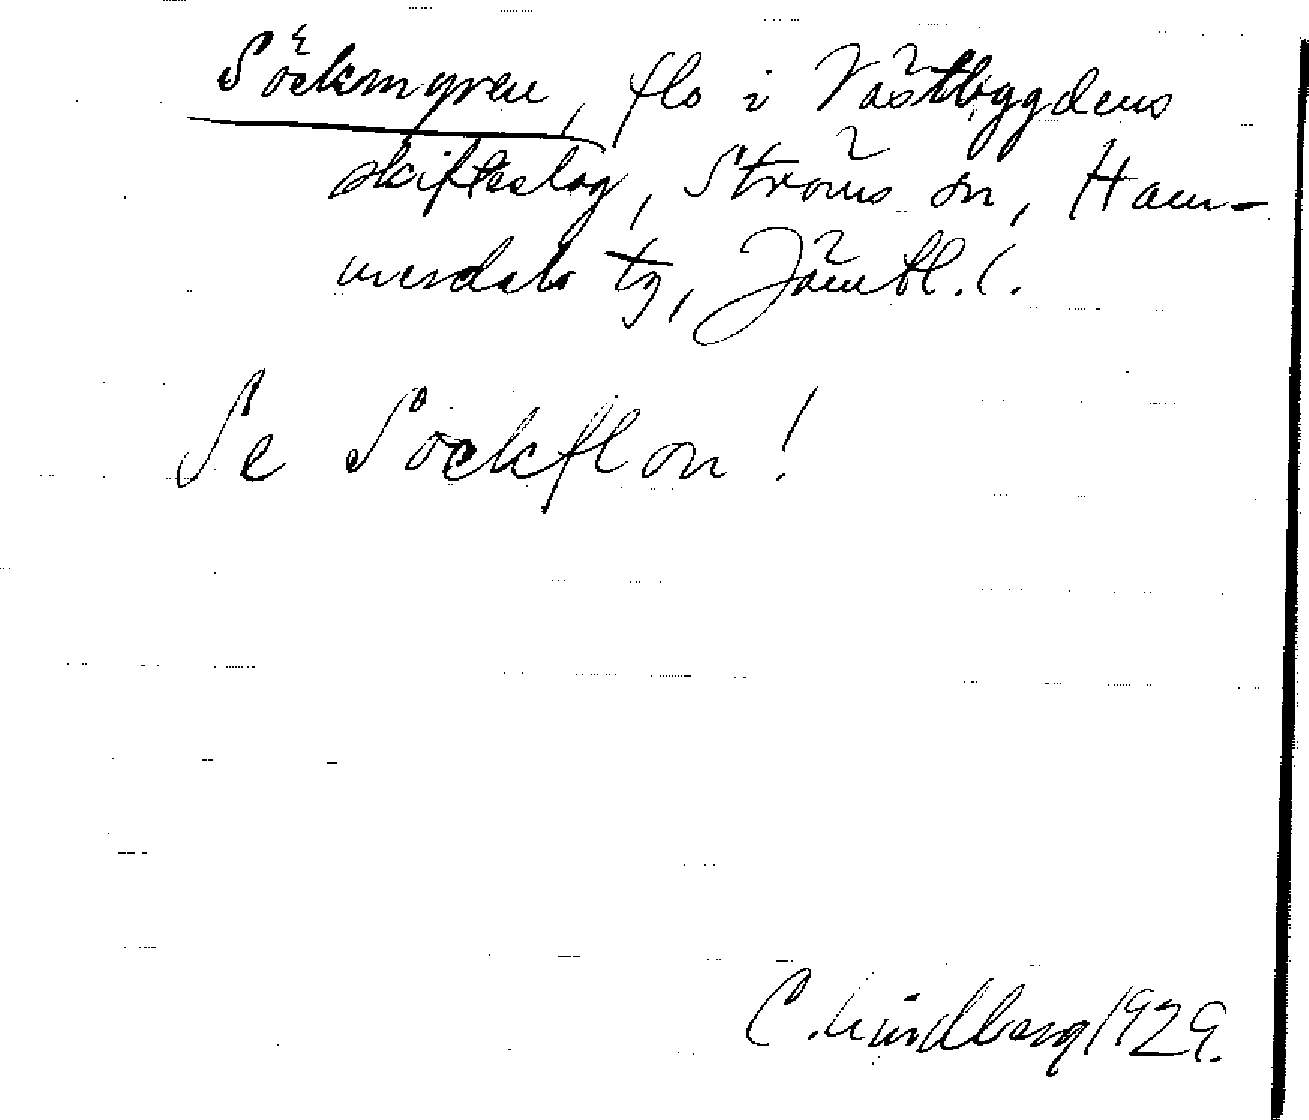 Söckmyren, flo i Västbygdens
skifteslag, Ströms sn, Ham-
merdals tg, Jämtl. l.
Se Sockflon!
C. Lindberg 1929.